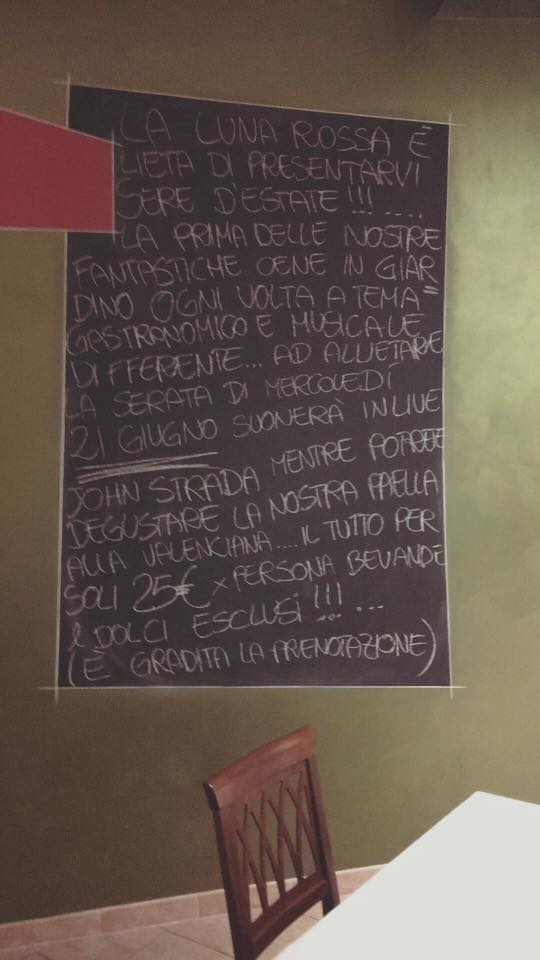 LA LUNA ROSSA È
LIETA DI PRESENTARVI
SERE D'ESTATE !!! ... ....
LA PRIMA DELLE NOSTRE
FANTASTICHE CENE IN GIAR
DINO OGNI VOLTA A TEMA =
GASTRANOMICO E MUSICALE
DIFFERENTE... AD ALLIETARE
LA SERATA DI MERCOLEDÍ
21 GIUGNO SUONERÀ IN LIVE
JOHN STRADA MENTRE POTRETE
DEGUSTARE LA NOSTRA PAELLA
ALLA VALENCIANA.... IL TUTTO PER
SOLI 25€ x PERSONA BEVANDE
e DOLCI ESCLUSI !!! ... ...
(È GRADITA LA PRENOTAZIONE)